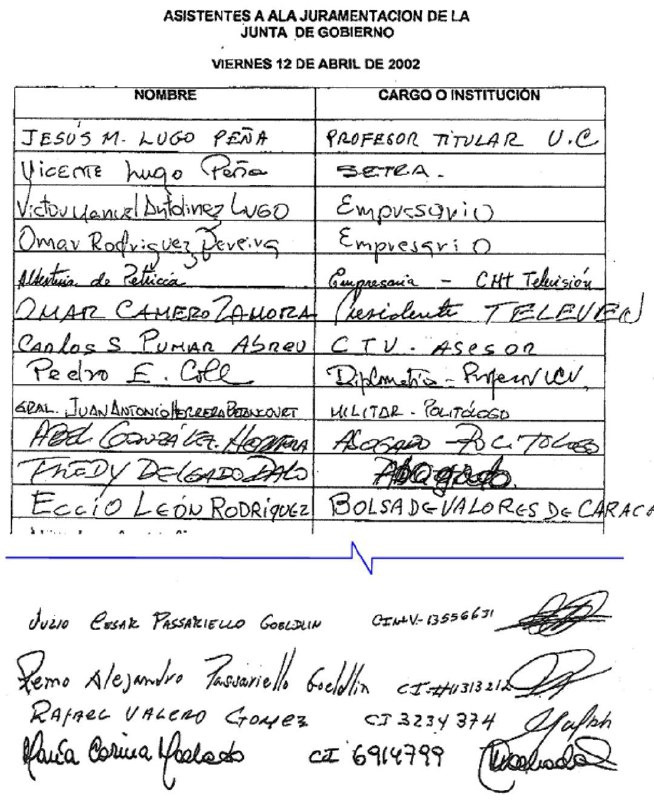 ASISTENTES A ALA JURAMENTACION DE LA
JUNTA DE GOBIERNO
VIERNES 12 DE ABRIL DE 2002
NOMBRE CARGO O INSTITUCIÓN
JESÚS M. LUGO PEÑA PROFESOR TITULAR U.C
Vicente Lugo Peña SETRA.
Victor Manuel Antolinez LUGO Empresario
Omar Rodriguez Pereira Empresario
de Empresaria - CMT Televisión
OMAR CAMERO ZAMORA Presidente TELEVEN
Carlos S PUMAR ABREU CTV - ASESOR
Pedro E. Coll Diplomatia - Profesor UCV.
GRAL. JUAN ANTONIO HERRERA BETANCOURT MILITAR - POLITÓLOGO
ABEL GONZÁLEZ HERRERA ABOGADO POLITOLOGO
FREDY DELGADO Abogado
ECCIO LEÓN RODRIGUEZ BOLSA DE VALORES DE CARACA
JULIO CESAR PASSARIELLO GOELDLIN CI#V-13556631
Remo Alejandro Passariello Goeldlin
RAFAEL VALERO GOMEZ CI 3234374
María Corina Machado CI 6914799 Machado